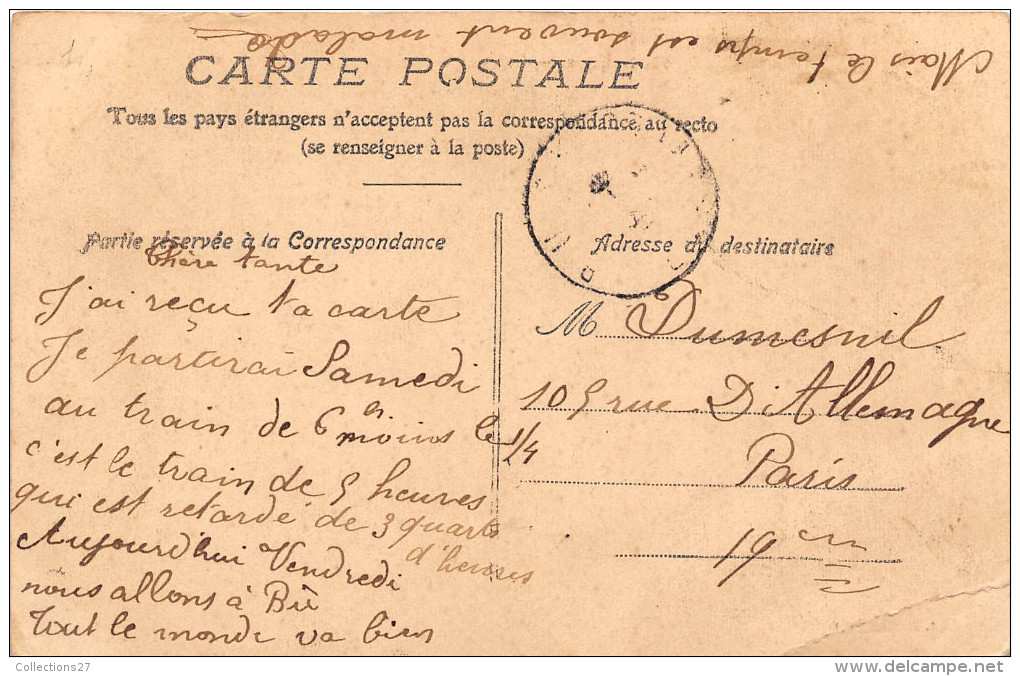 Mais le temps est souvent malade
CARTE POSTALE
Tous les pays étrangers n'acceptent pas la correspondance au recto
(se renseigner à la poste)
Partie réservée à la Correspondance
Chère tante
J'ai reçu ta carte
Je partirai Samedi
au train de 6 h moins le 1/4
c'est le train de 5 heures
qui est retardé de 3 quarts
d'heures
Aujourd'hui Vendredi
nous allons à Bû
Tout le monde va bien
Adresse du destinataire
M Dumesnil
105 rue D'Allemagne
Paris
19em
Collections27
delcampe.net